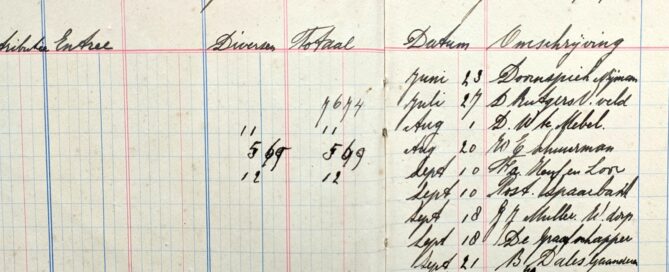 Entree Diversen Totaal Datum Omschrijving
Juni 23 Doornspiek Nijman
7674 Juli 27 D. Rutgers V. veld
11 11 Aug 1 D. W te Mebel.
5 69 5 69 Aug 20 W E
12 12 Sept 10 Fa. en Loor
Sept 10 Post. spaarbank
Sept 18 J J Muller. W'dorp
Sept 18 De
Sept 21 B. Dales